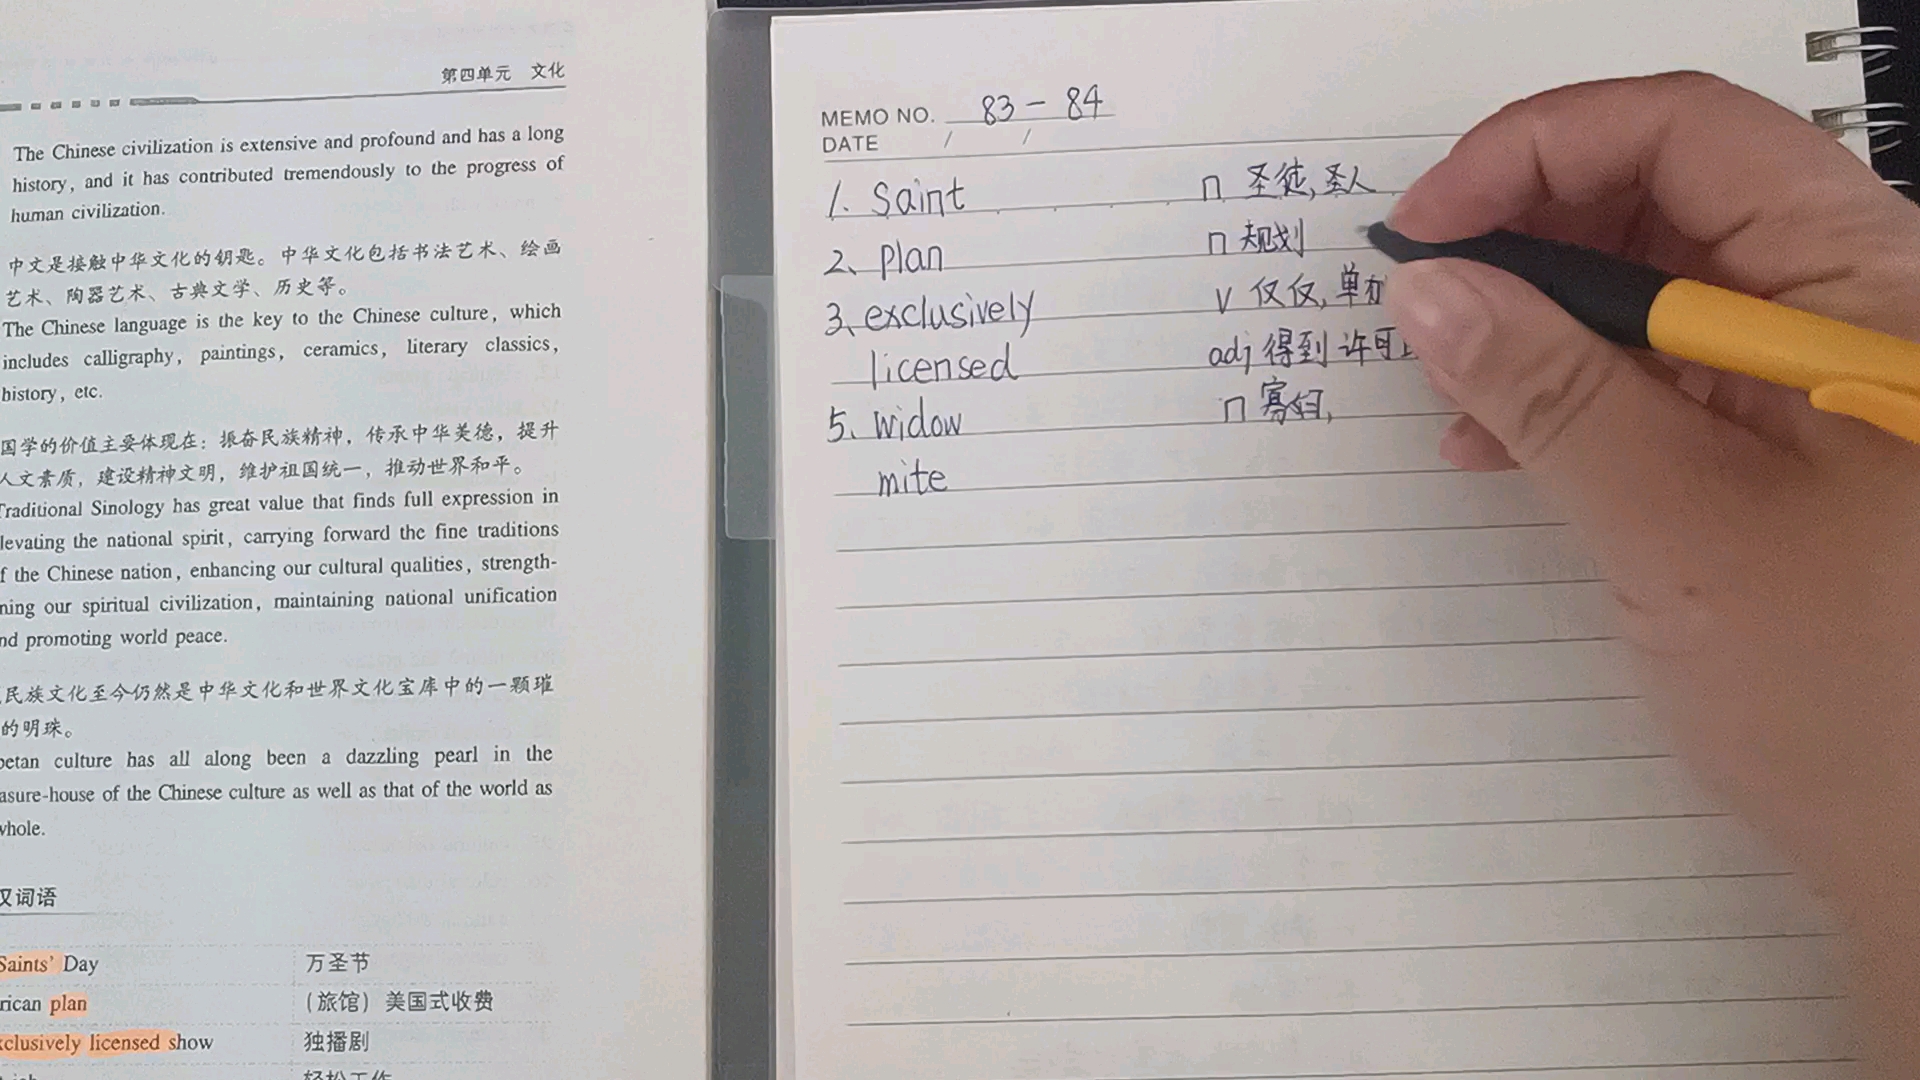 第四单元 文化
The Chinese civilization is extensive and profound and has a long
history, and it has contributed tremendously to the progress of
human civilization.
中文是接触中华文化的钥匙。中华文化包括书法艺术、绘画
艺术、陶器艺术、古典文学、历史等。
The Chinese language is the key to the Chinese culture, which
includes calligraphy, paintings, ceramics, literary classics,
history, etc.
国学的价值主要体现在：振奋民族精神，传承中华美德，提升
人文素质，建设精神文明，维护祖国统一，推动世界和平。
Traditional Sinology has great value that finds full expression in
levating the national spirit, carrying forward the fine traditions
f the Chinese nation, enhancing our cultural qualities, strength-
ning our spiritual civilization, maintaining national unification
nd promoting world peace.
民族文化至今仍然是中华文化和世界文化宝库中的一颗璀
的明珠。
betan culture has all along been a dazzling pearl in the
asure-house of the Chinese culture as well as that of the world as
whole.
汉词语
Saints' Day 万圣节
rican plan （旅馆）美国式收费
xclusively licensed show 独播剧
MEMO NO. 83-84
DATE / /
1. Saint n 圣徒,圣人
2、plan n 规划
3、exclusively v 仅仅,单
licensed adj 得到许可
5、widow n 寡妇,
mite